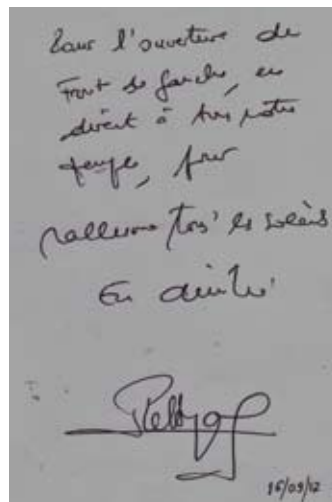 Pour l'ouverture du
Front de Gauche, en
direct à tous notre
peuple, pour
rallumer tous les soleils
En amitié
16/09/12